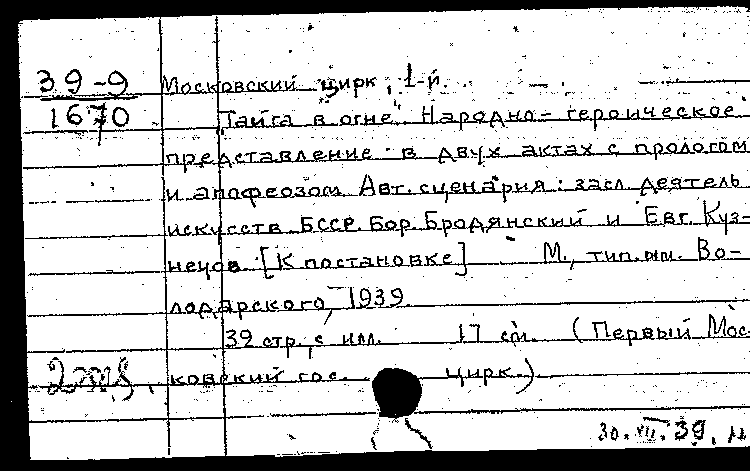 39-9
1670
Московский цирк, 1-й.
"Тайга в огне". Народно-героическое
представление в двух актах с прологом
и апофеозом. Авт. сценария: засл. деятель
искусств БССР. Бор. Бродянский и Евг. Куз-
нецов. [К постановке] М., тип. им. Во-
лодарского, 1939.
39 стр. с илл. 17 см. (Первый Мос-
ковский гос. цирк.)
30.XII.39.